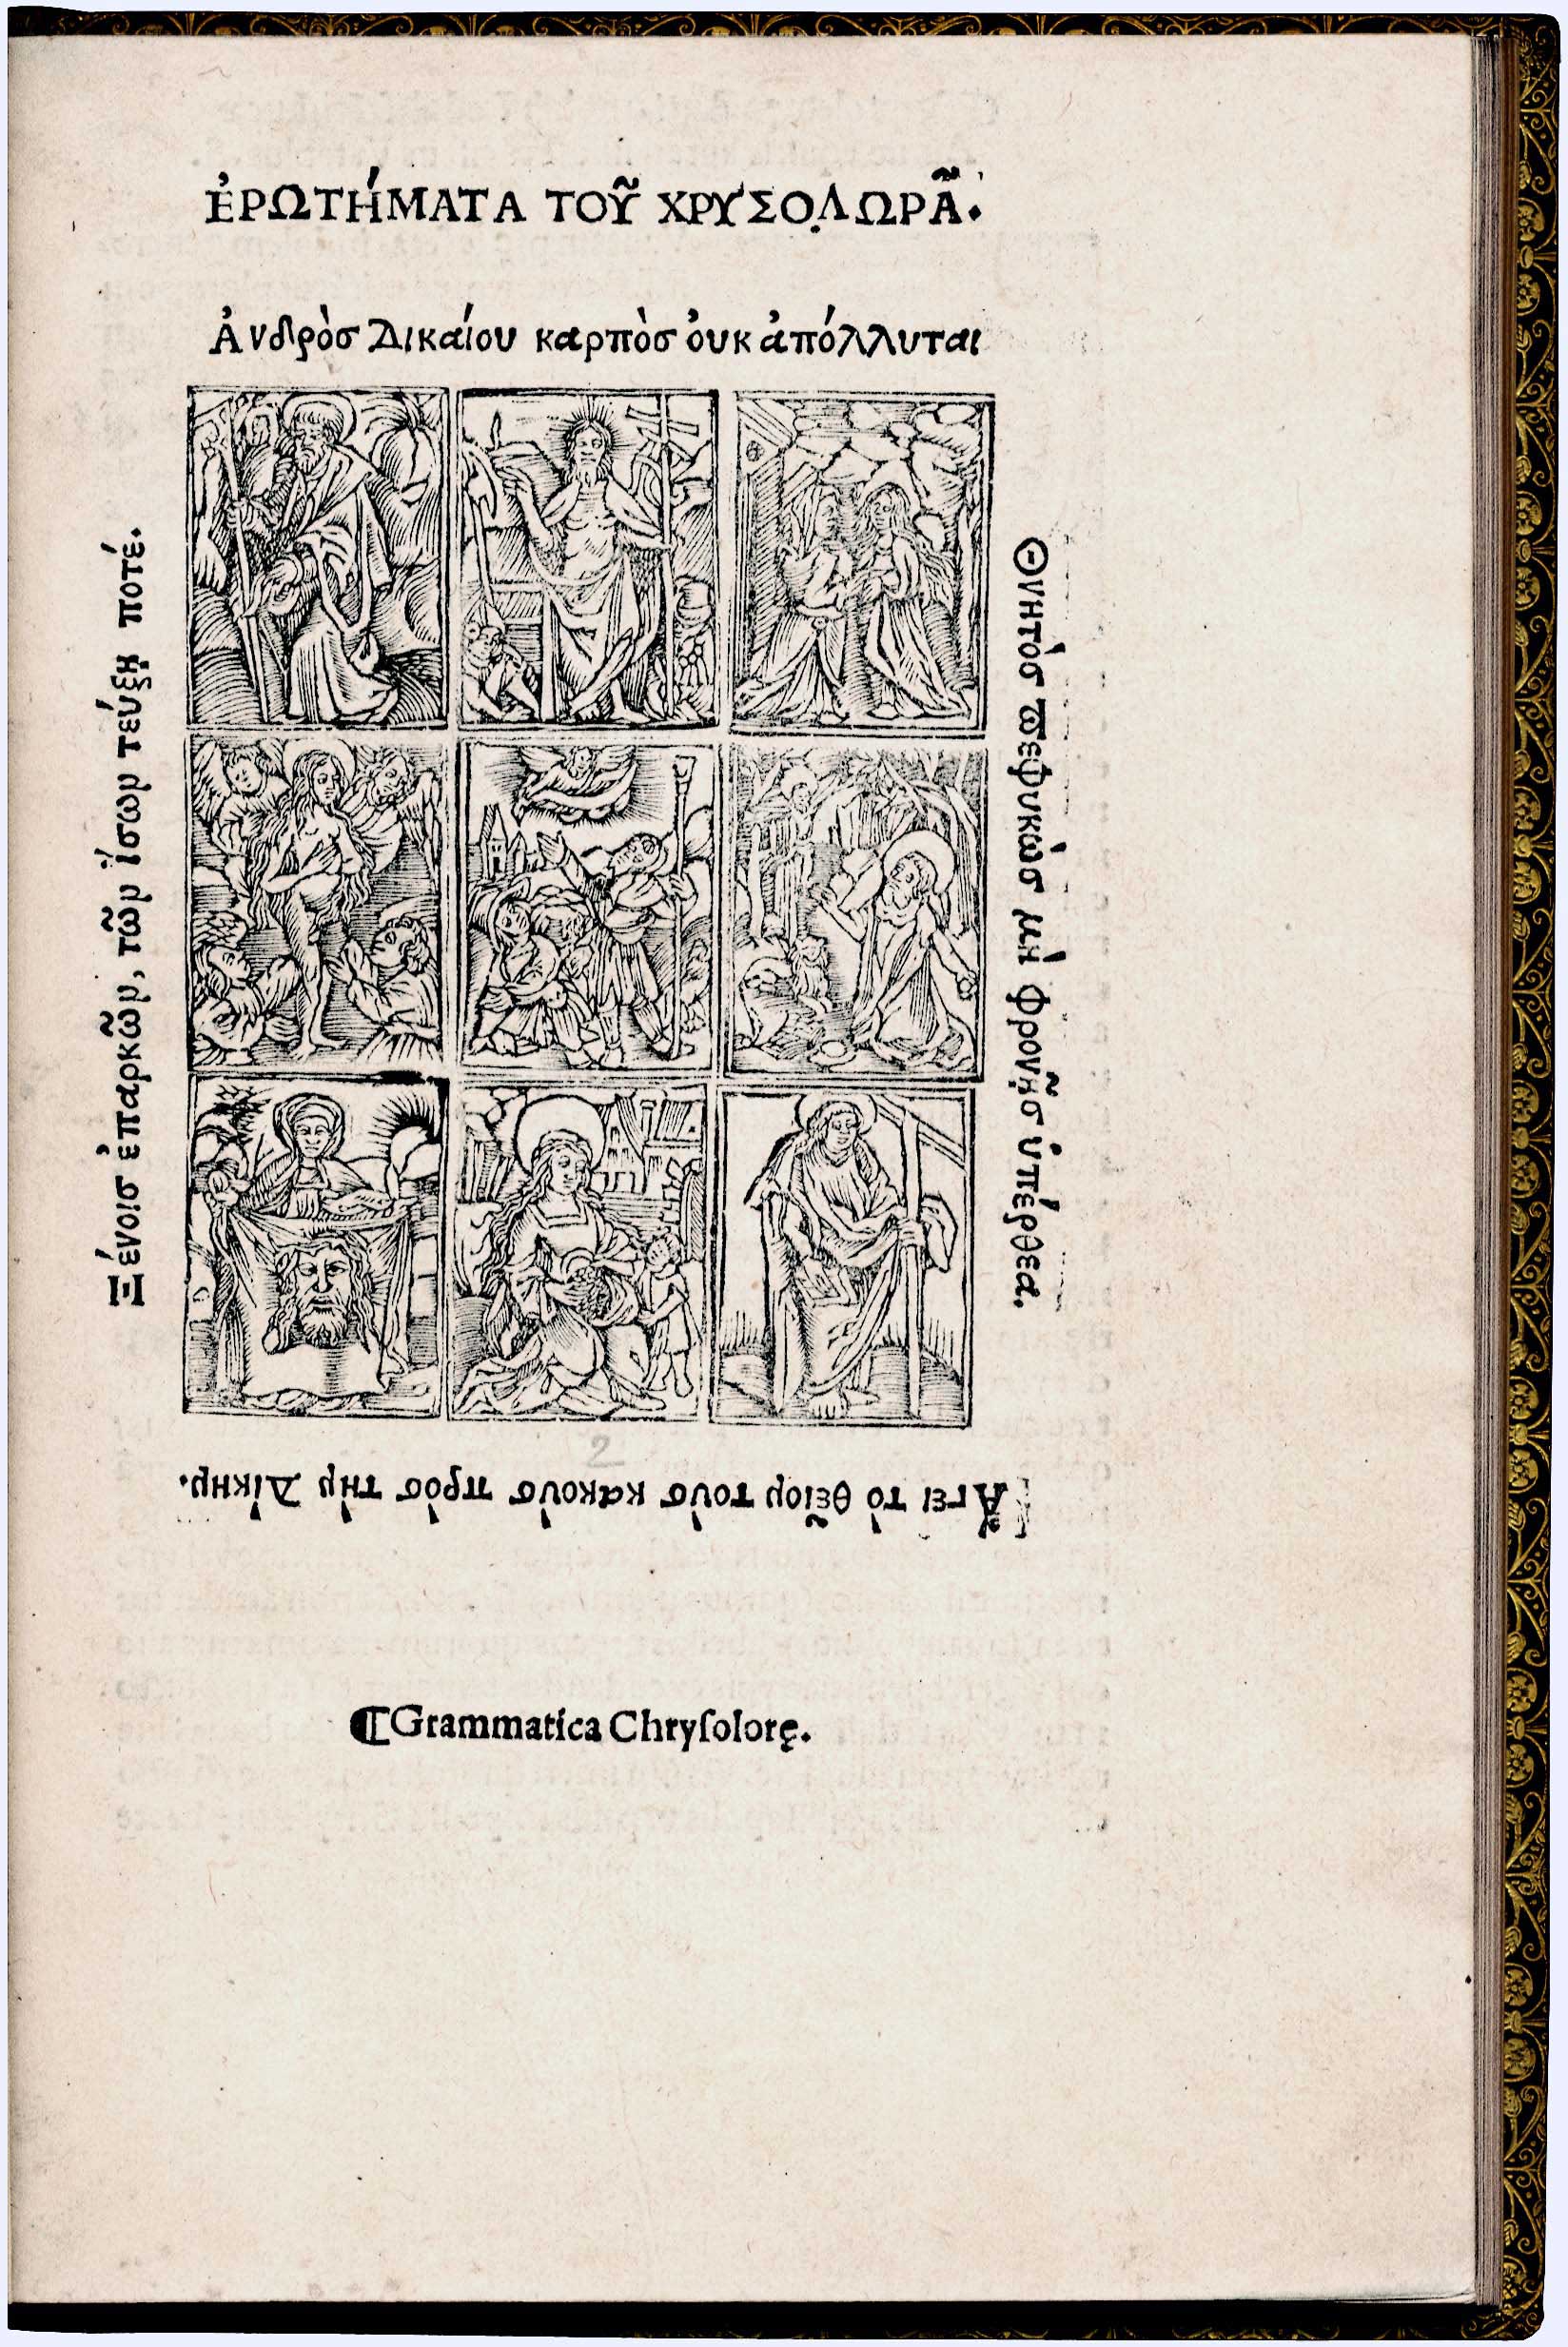 ἘΡΩΤΉΜΑΤΑ ΤΟῦ ΧΡΥΣΟΛΩΡᾶ.
Ἀνδρὸσ Δικαίου καρπὸσ ὀυκ ἀπόλλυται
Θνητὸσ πεφυκὼσ μὴ φρονῇσ ὑπέρθεα.
Ἄγει τὸ θεῖον τοὺσ κακοὺσ πρὸσ τὴν Δίκην.
Ξένοισ ἐπαρκῶν, τῶν ἴσων τέυξῃ ποτέ.
2
¶Grammatica Chryſolorę.